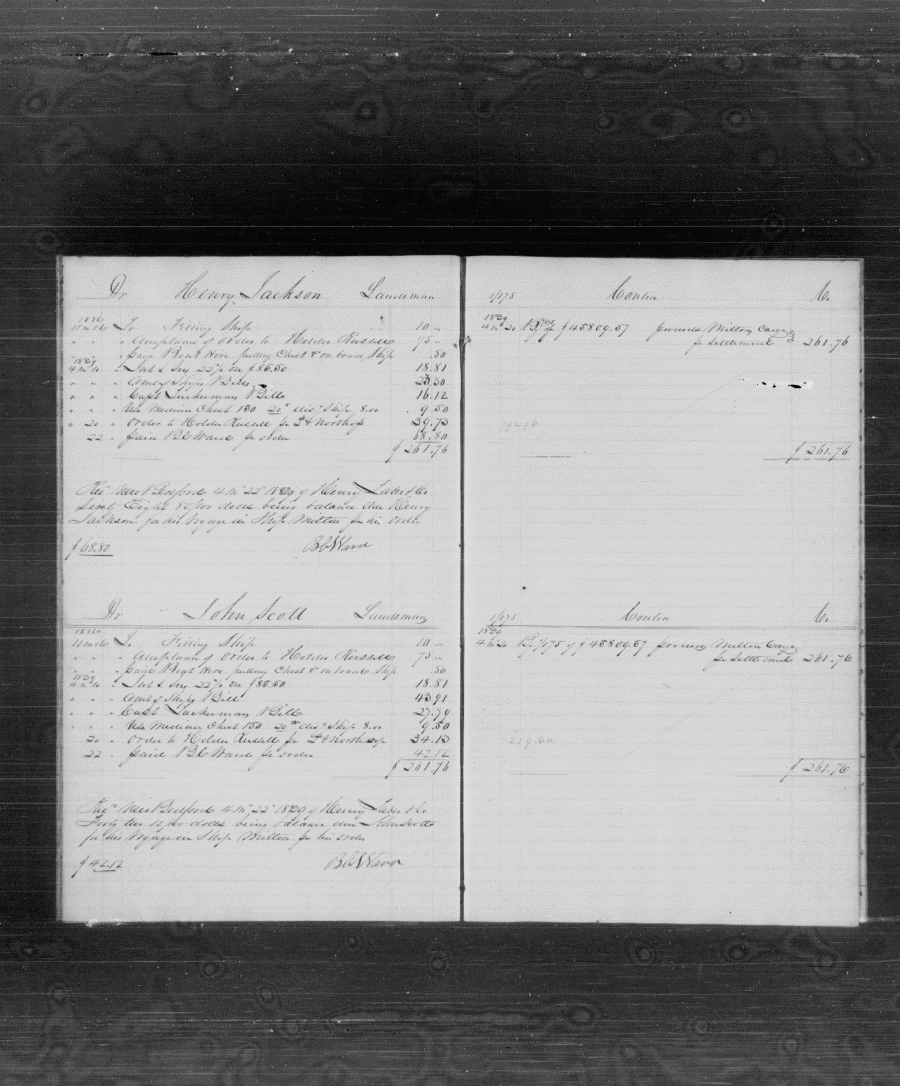 Dr Henry Jackson Landsman
1836
11 m 16 To Fitting Ship 10 -
" " " order to Holder Russell 75 -
" " " putting Chest &c on board Ship .50
1839
4 m 20 " Int & Ins 22% on $85.50 18.81
" " " Amo of Ships Bill 23.50
" " " Capt Bill 16.12
" " " Use Medicine Chest 150 disc Ship 8.00 9.50
" 20 " order to Holder Russell for 39.73
22 " paid B C Ward for order 68.80
$ 261.76
New Bedford 4 m 22 1839 of Henry Taber & Co
Sixty Eight 80/100 dolls being balance due Henry
Jackson for his Voyage in Ship Milton for his order
$ 68.80 B C Ward
1/175 Contra Cr
1839
4 m 20 By 1/175 of $45809.57 proceeds Milton Cargo
for Settlement 261.76
$ 261.76
Dr John Scott Landsman
1836
11 m 16 To Fitting Ship 10 -
" " " order to Holder Russell 75 -
" " " putting Chest &c on board Ship 50
1839
4 m 20 " Int & Ins 22% on $85.50 18.81
" " " Amt of Ships Bill 43.91
" " " Capt Bill 27.79
" " " Use Medicine Chest 150 disc Ship 8.00 9.50
20 " order to Holder Russell for 34.13
22 " paid B C Ward for order 42.12
$ 261.76
New Bedford 4 m 22 1839 of Henry Taber & Co
Forty two 12/100 dolls being balance due John Scott
for his Voyage in Ship Milton for his order
$ 42.12 B C Ward
1/175 Contra Cr
1839
4 m 20 By 1/175 of $45809.57 proceeds Milton Cargo
for Settlement 261.76
$ 261.76